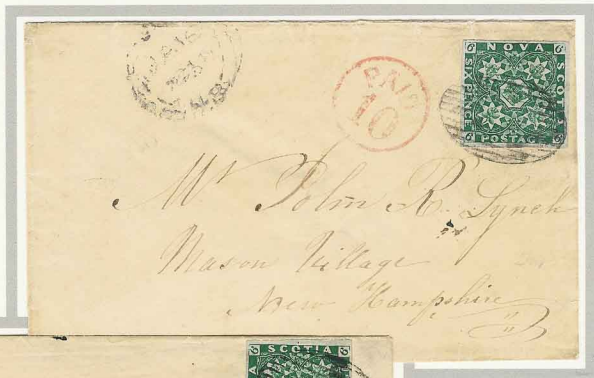 PAID
10
NOVA SCOTIA
SIX PENCE
POSTAGE
6
6
6
Mr John R. Lynch
Mason Village
New Hampshire
SCOTIA
6
6